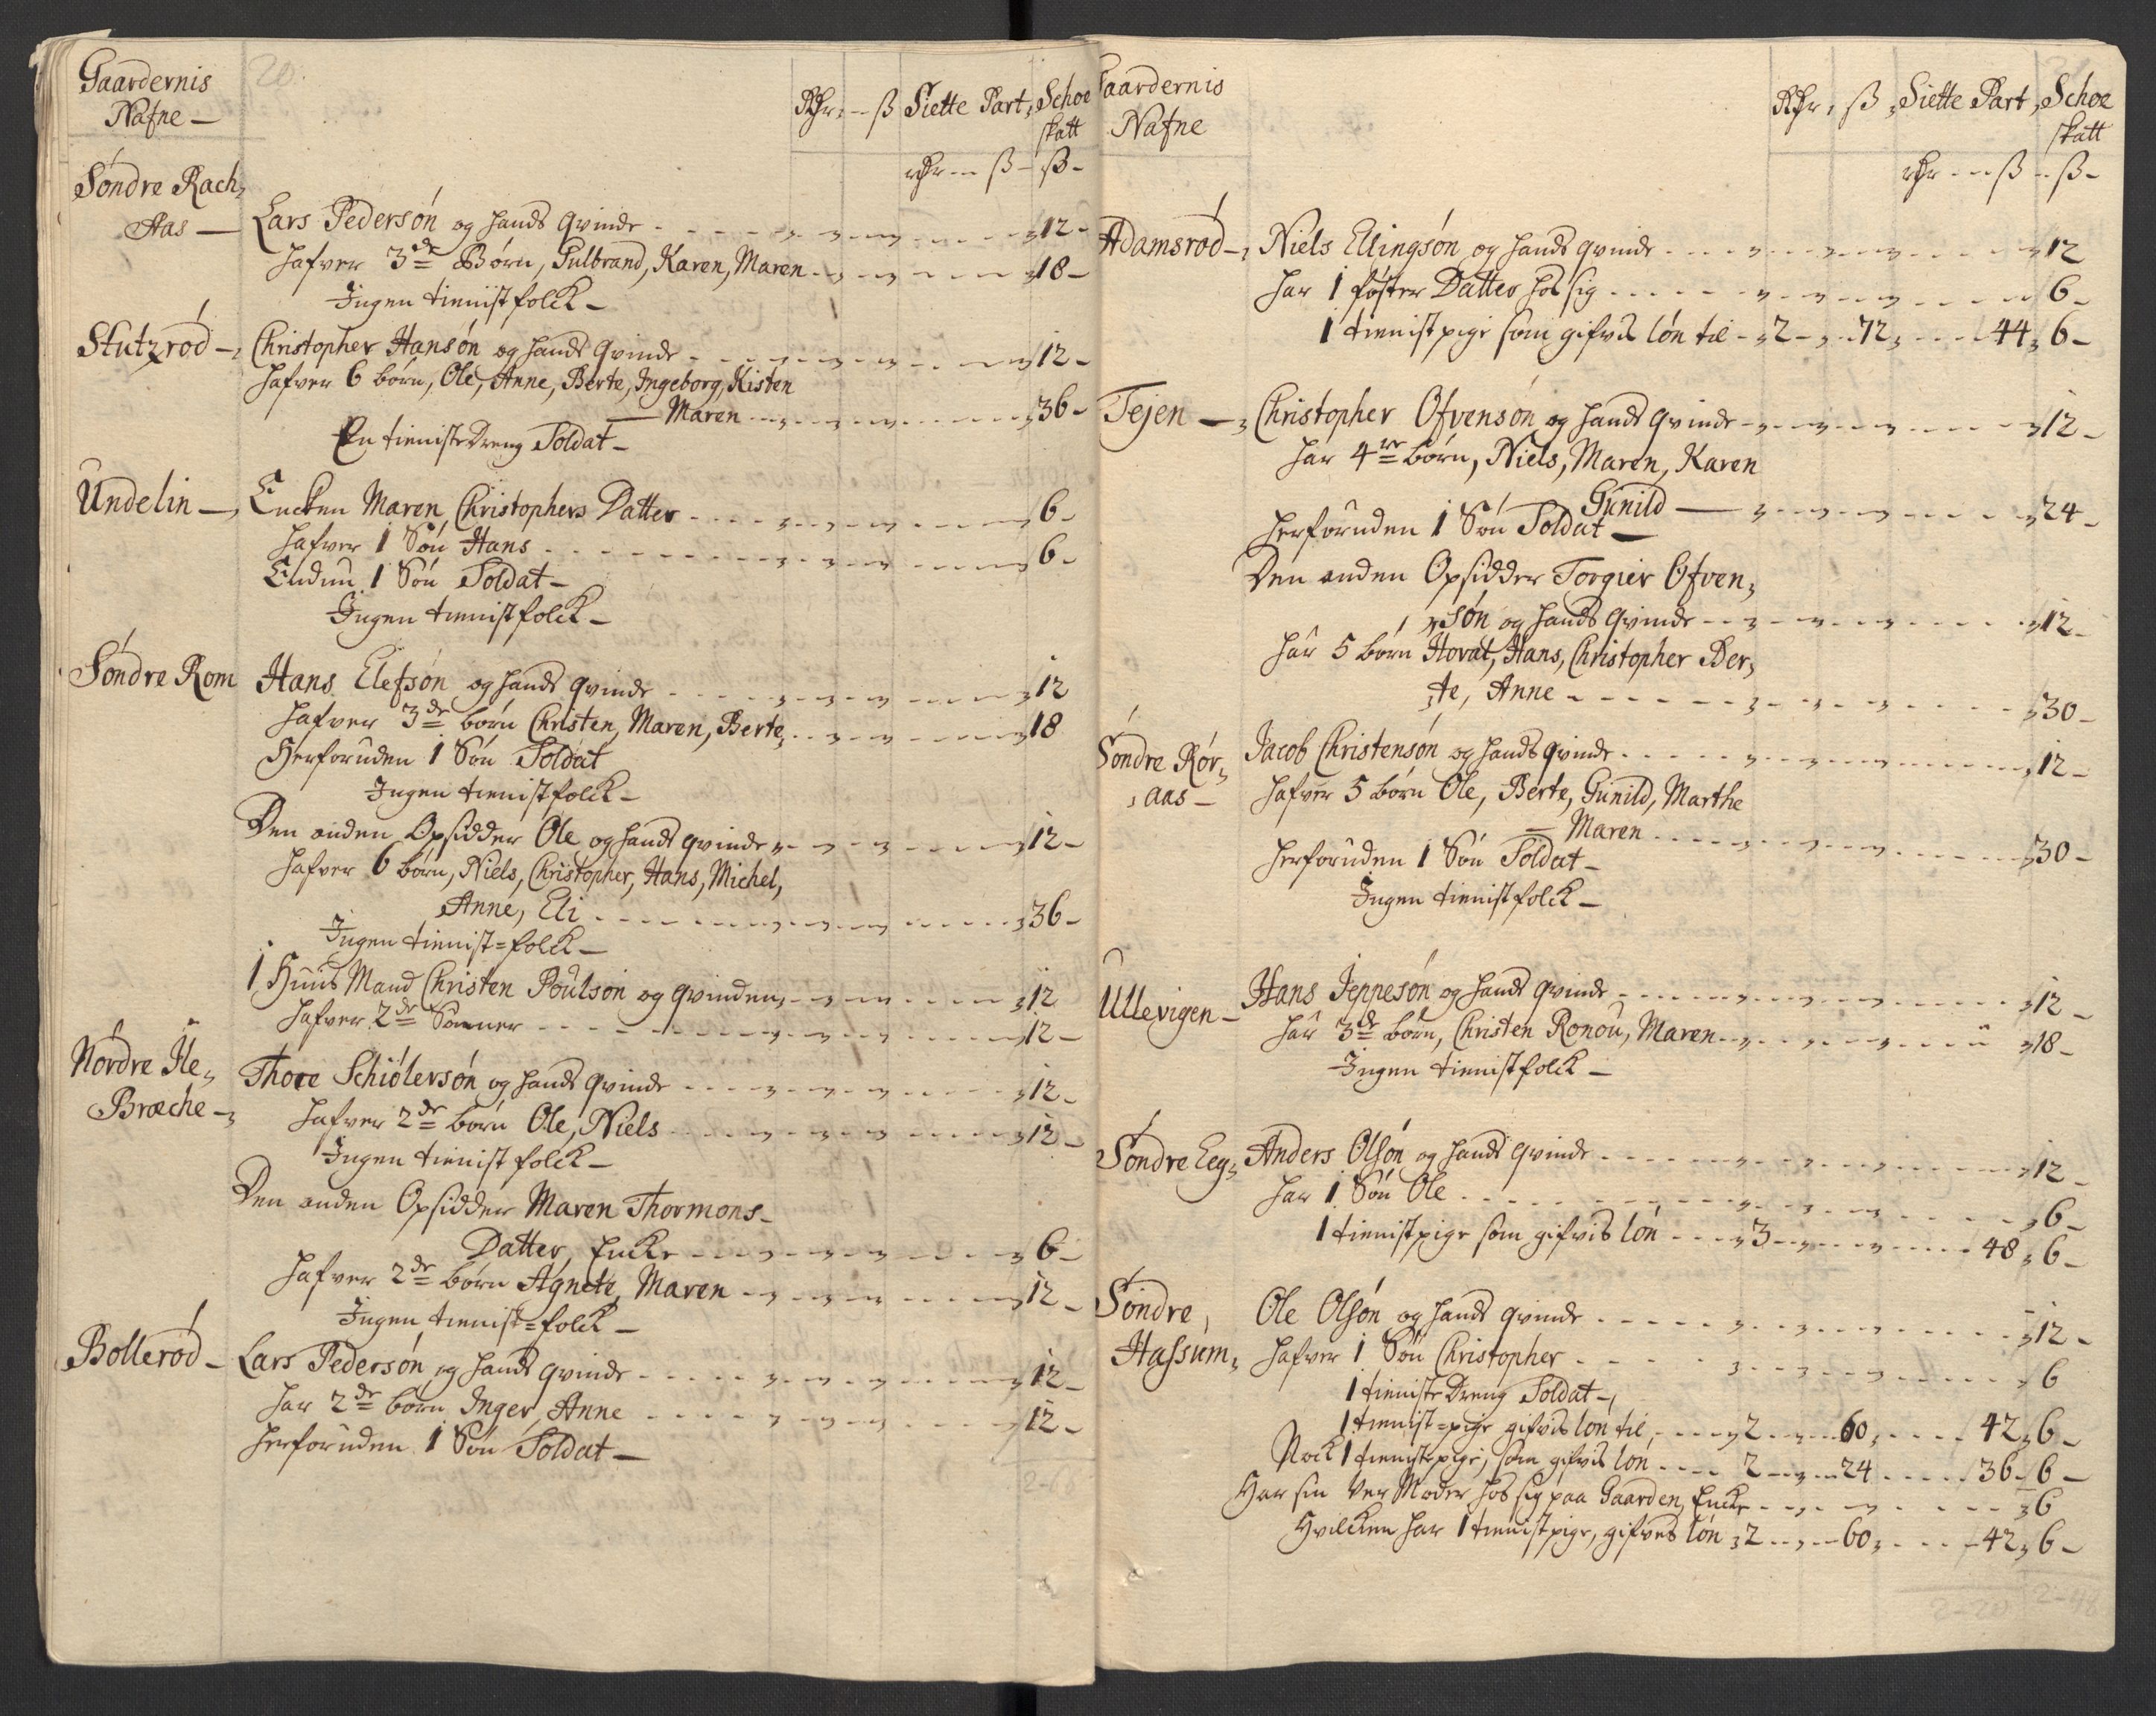 Gaardernis
Nafne -
20
Rdr - ß Siette Part, Schoe
skatt
rdr - ß - ß -
Söndre Rach,
Aas - Lars Pedersön og hands qvinde - 12 -
hafver 3de Börn, Gulbrand, Karen, Maren - 18 -
Ingen tienist folck -
Stutzröd - Christopher Hansön og hands qvinde - 12 -
hafver 6 börn, Ole, Anne, Berte, Ingeborg, Kisten
- Maren - 36 -
En tieniste Dreng Soldat -
Undelin - Encken Maren Christophers Datter - 6 -
hafver 1 Sön Hans - 6 -
Endnu 1 Sön Soldat -
Ingen tienist folck -
Söndre Rom Hans Elefsön og hands qvinde - 12
hafver 3de börn Christen, Maren, Berte, - 18
Herforuden 1 Sön Soldat
Ingen tienist folck -
Den anden Opsidder Ole og hands qvinde - 12 -
hafver 6 börn, Niels, Christopher, Hans, Michel,
Anne, Eli - 36 -
Ingen tienist = folck -
1 Huus Mand Christen Poulsön og qvinden, - 12
hafver 2de Sönner - 12 -
Nordre Ile,
Bræche - Thore Schiölersön og hands qvinde - 12 -
hafver 2de börn Ole, Niels - 12 -
Ingen tienist folck -
Den anden Opsidder Maren Thormons -
Datter, Encke - 6 -
hafver 2de börn Agnete, Maren - 12 -
Ingen tienist = folck -
Bolleröd - Lars Pedersön og hands qvinde - 12 -
har 2de börn Inger, Anne - 12 -
herforuden 1 Sön Soldat -
Gaardernis
Nafne
Rdr, ß, Siette Part, Schoe
skatt
rdr - ß - ß -
Adamsröd - Niels Ellingsön og hands qvinde - 12
har 1 föster Datter hos sig - 6 -
1 tienist pige som gifvis lön til - 2 - 72, - 44, 6 -
Tejen - Christopher Ofvensön og hands qvinde - 12 -
har 4re börn, Niels, Maren, Karen
Gunild - 24 -
herforuden 1 Sön Soldat -
Den anden Opsidder Torgier Ofven,
sön og hands qvinde - 12 -
har 5 börn Hovat, Hans, Christopher Ber,
te, Anne - 30 -
Söndre Rör,
aas - Jacob Christensön og hands qvinde - 12 -
hafver 5 börn Ole, Berte, Gunild, Marthe
- Maren - 30 -
herforuden 1 Sön Soldat -
Ingen tienist folck -
Ullevigen - Hans Jeppesön og hands qvinde - 12 -
har 3de börn, Christen Ronou, Maren - 18 -
Ingen tienist folck -
Söndre Eeg, Anders Olsön og hands qvinde - 12 -
har 1 Sön Ole - 6 -
1 tienistpige som gifvis lön - 3 - 48, 6 -
Söndre,
Hassum, Ole Olsön og hands qvinde - 12 -
hafver 1 Sön Christopher - 6
1 tieniste Dreng Soldat -
1 tienist = pige gifvis lön til, - 2 - 60, - 42, 6 -
Nock 1 tienistepige, som gifvis lön - 2 - 24 - 36 - 6 -
Har sin Ver Moder hos sig paa Gaarden, Encke - 6
Hvilcken har 1 tienist pige, gifves lön, 2 - 60, - 42, 6 -
2-20 2-48